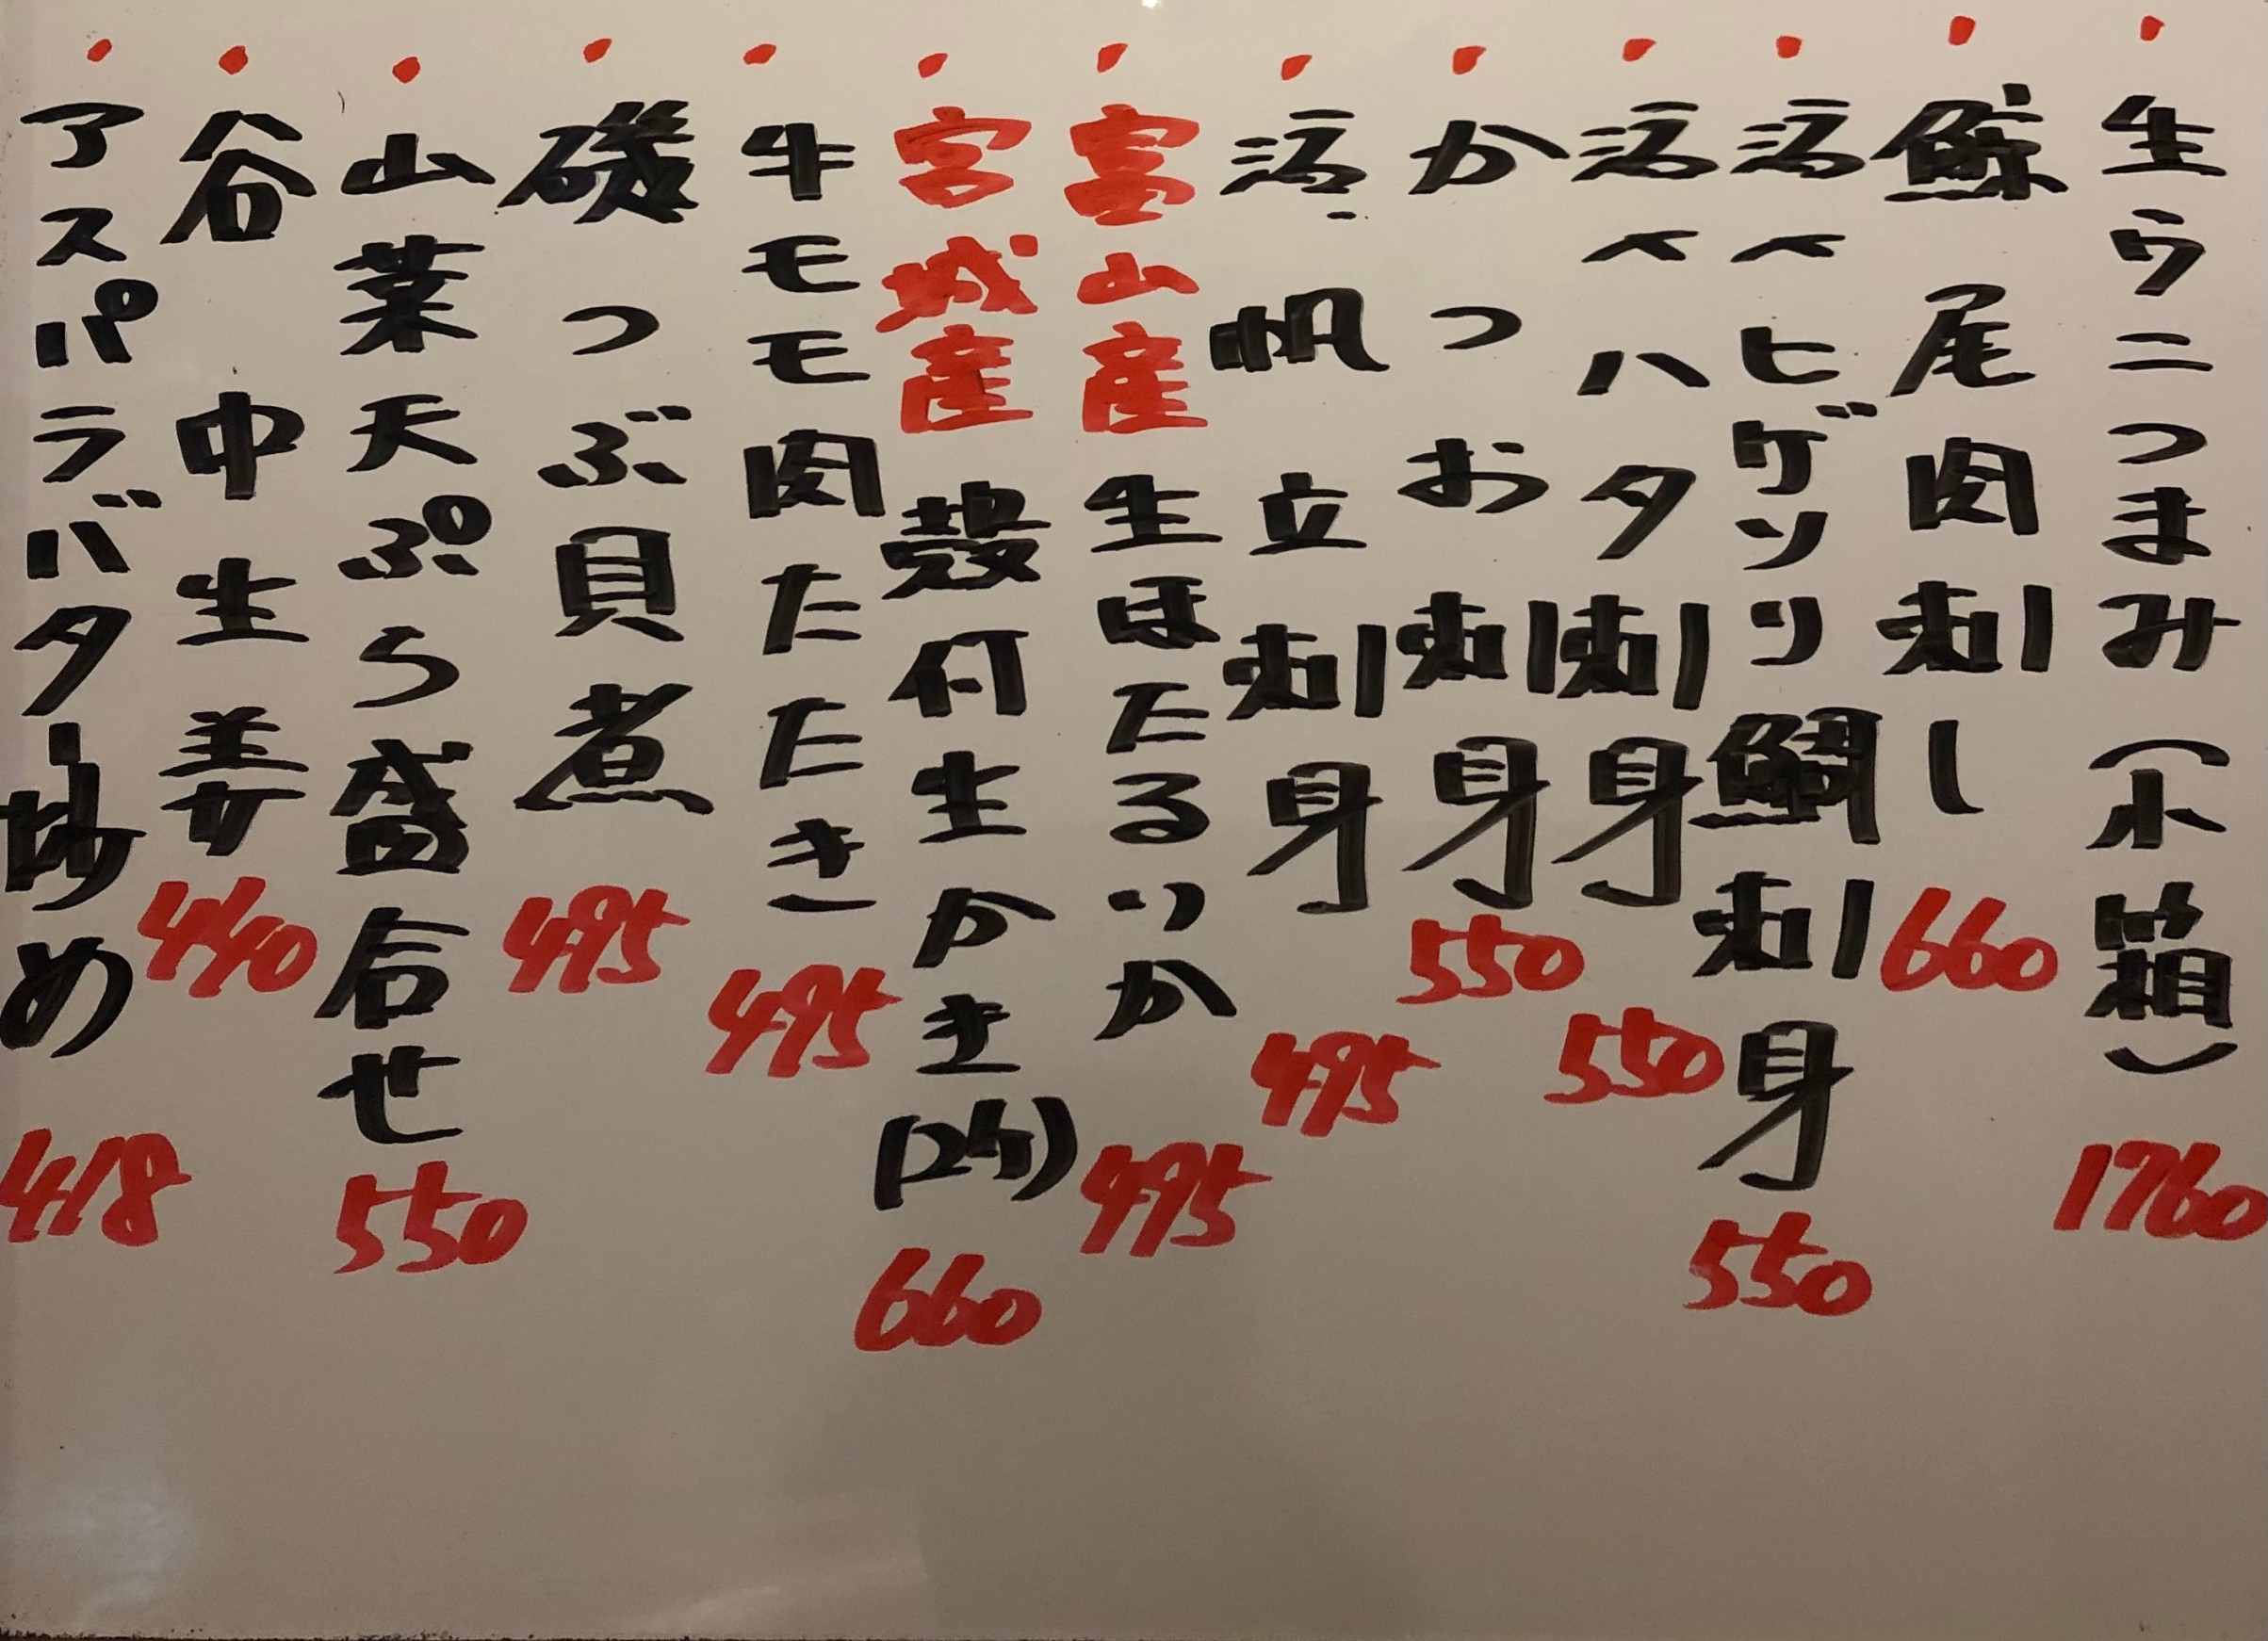 ・生ウニつまみ(小箱) 1760
・鯨尾肉刺し 660
・活〆ヒゲソリ鯛刺身 550
・活〆ハタ刺身 550
・かつお刺身 550
・活帆立刺身 495
・富山産生ほたるいか 495
・宮城産殻付生かき(2ケ) 660
・牛モモ肉たたき 495
・磯つぶ貝煮 495
・山菜天ぷら盛合せ 550
・谷中生姜 440
・アスパラバター炒め 418